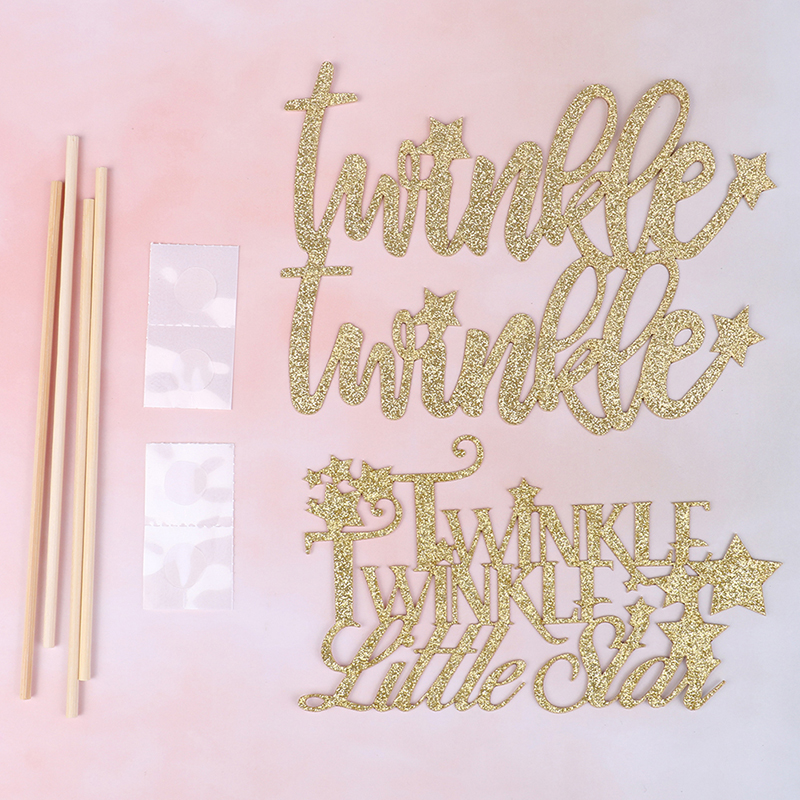 twinkle
twinkle
TWINKLE
TWINKLE
Little Star